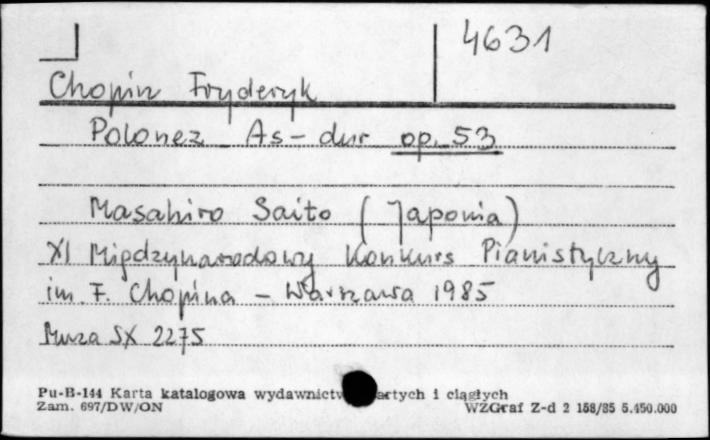 4631
Chopin Fryderyk
Polonez As-dur op. 53
Masahiro Saito (Japonia)
XI Międzynarodowy Konkurs Pianistyczny
im. F. Chopina - Warszawa 1985
Muza SX 2275
Pu-B-144 Karta katalogowa wydawnictw artych i ciągłych
Zam. 697/DW/ON WZGraf Z-d 2 158/85 5.450.000